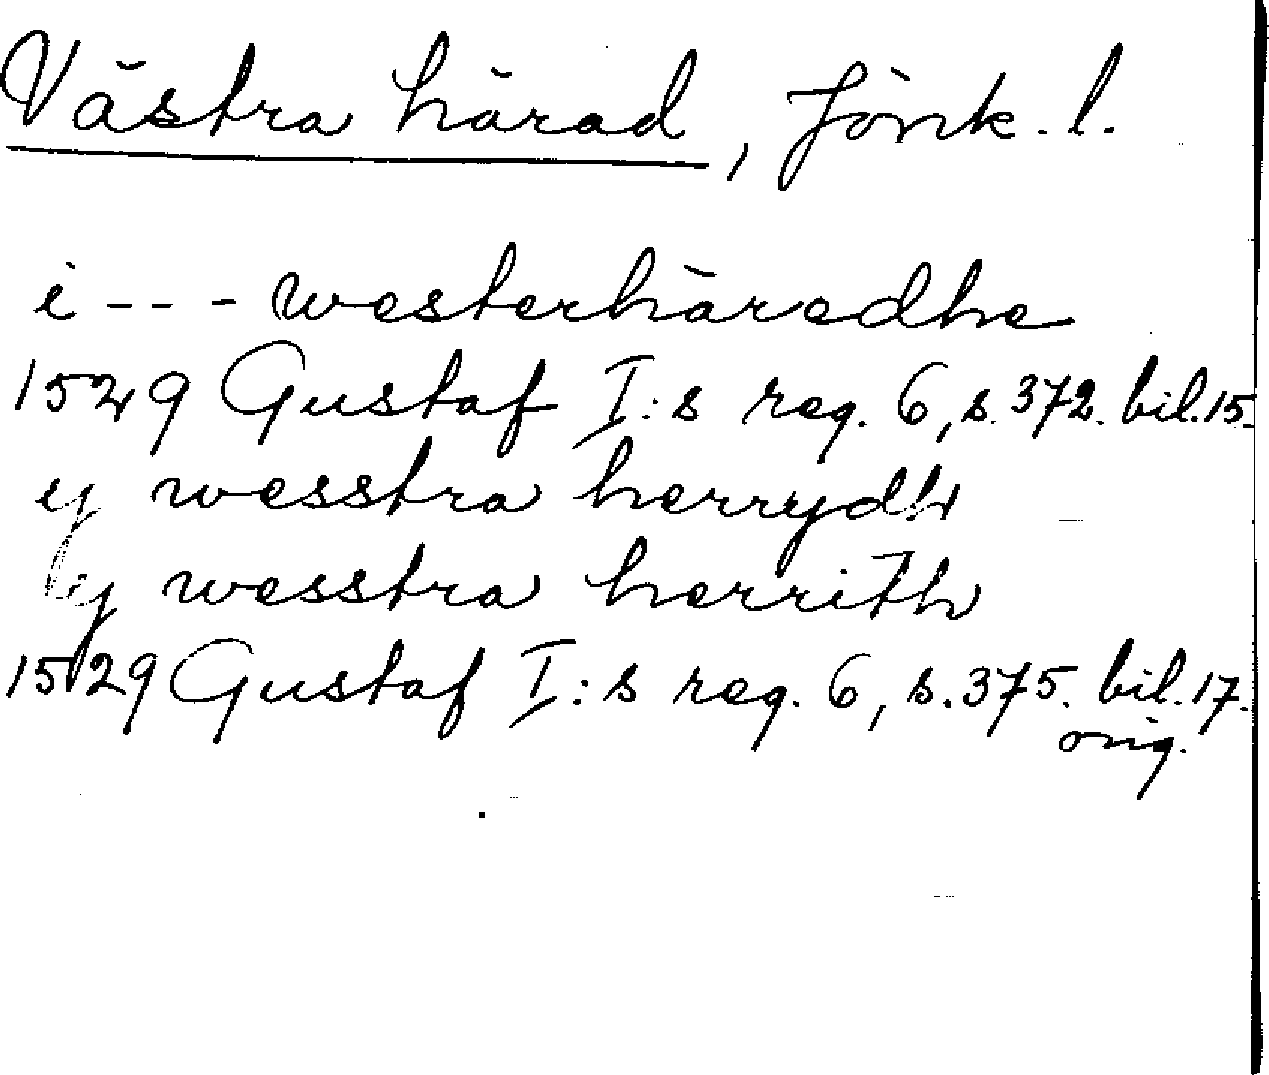 Västra härad, Jönk. l.
i --- westerhäredhe
1529 Gustaf I:s reg. 6, s. 372. bil. 15.
y wesstra herrydh
y wesstra herrith
1529 Gustaf I:s reg. 6, s. 375. bil. 17.
orig.